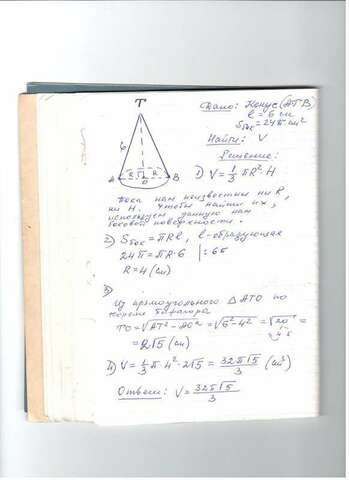 T
Дано: Конус (АТВ)
l = 6 см
Sбок = 24π см²
Найти: V
Решение:
6
А R R В
О
1) V = 1/3 πR²·H
Пока нам неизвестны ни R,
ни H. Чтобы найти их,
используем данную нам
боковой поверхности.
2) Sбок = πRl, l - образующая
24π = πR·6 |:6π
R = 4 (см)
3)
Из прямоугольного △ АТО по
теореме Пифагора
ТО = √АТ² - АО² = √6² - 4² = √20 =
4·5
= 2√5 (см)
4) V = 1/3 π·4²·2√5 = 32π√5/3 (см³)
Ответ: V = 32π√5/3